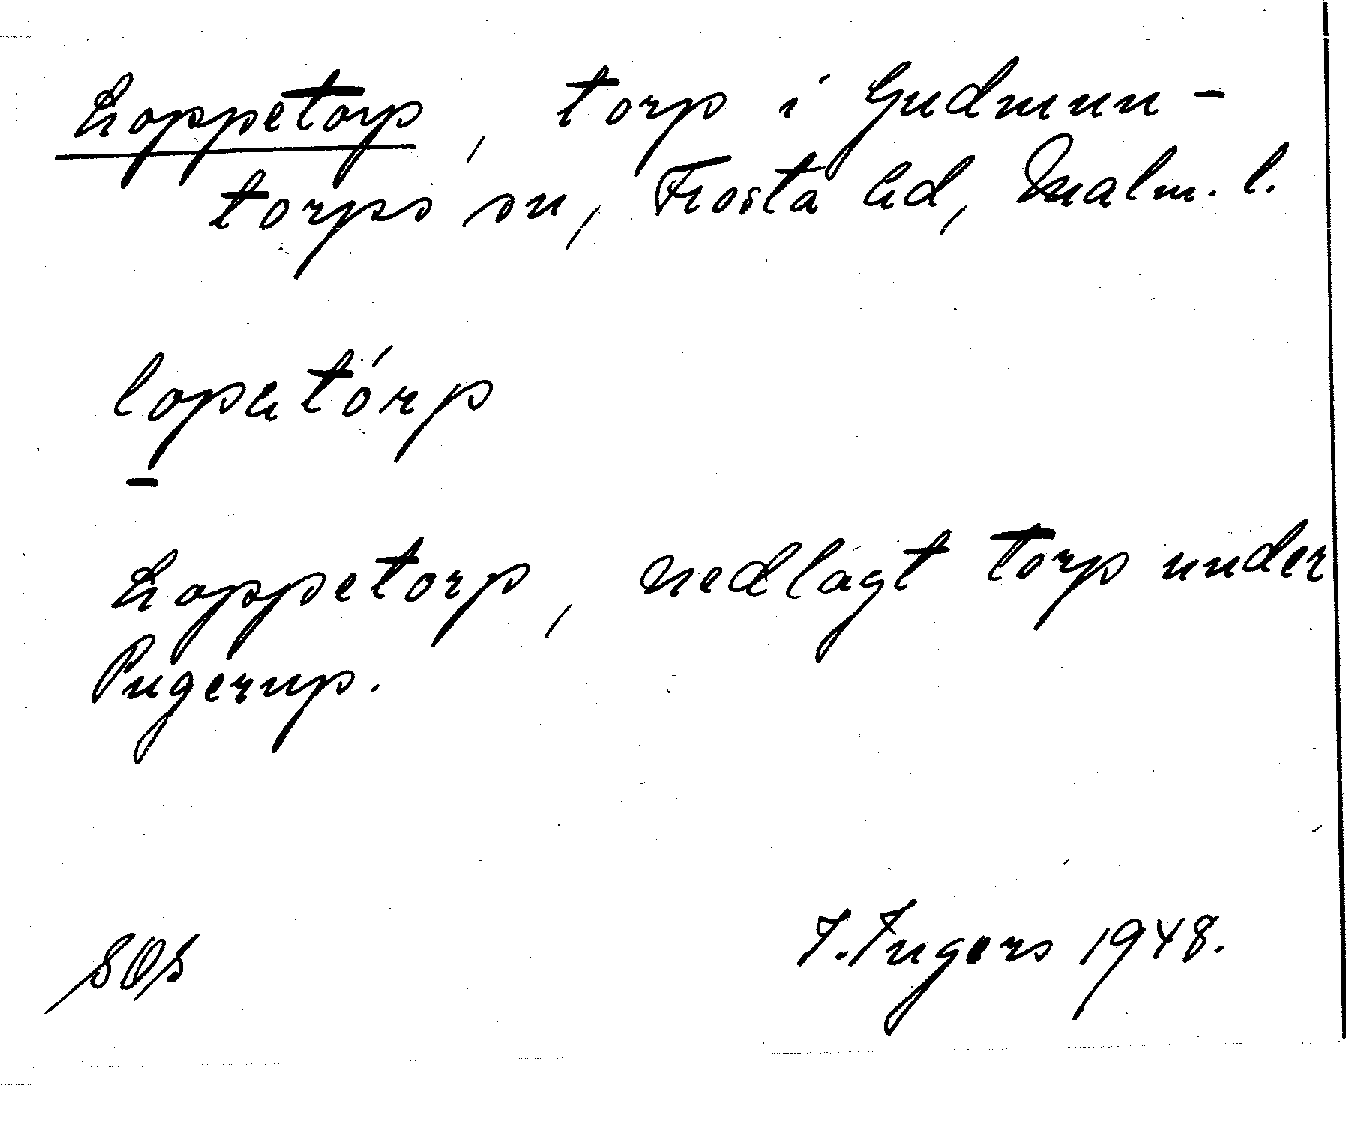 Loppetorp, torp i Gudmun-
torps sn, Frosta hd, Malm. l.
lopatórp
Loppetorp, nedlagt torp under
Pugerup.
I. Ingers 1948.